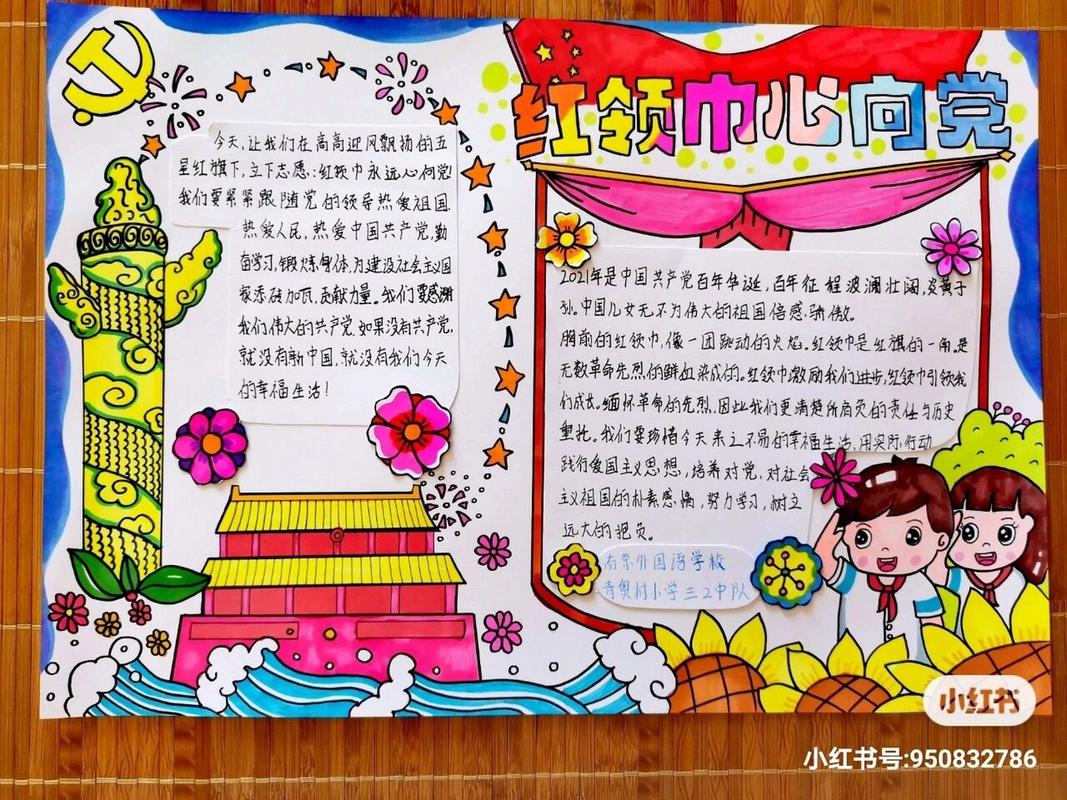 红领巾心向党
今天,让我们在高高迎风飘扬的五
星红旗下,立下志愿:红领巾永远心向党!
我们要紧紧跟随党的领导热爱祖国.
热爱人民,热爱中国共产党,勤
奋学习,锻炼身体,为建设社会主义国
家添砖加瓦,贡献力量。我们要感谢
我们伟大的共产党,如果没有共产党,
就没有新中国,就没有我们今天
的幸福生活!
2021年是中国共产党百年华诞,百年征程波澜壮阔,炎黄子
孙。中国儿女无不为伟大的祖国倍感骄傲。
胸前的红领巾,像一团跳动的火焰。红领巾是红旗的一角,是
无数革命先烈的鲜血染成的。红领巾激励我们进步,红领巾引领我
们成长。缅怀革命的先烈,因此我们更清楚所肩负的责任与历史
重托。我们要珍惜今天来之不易的幸福生活,用实际行动
践行爱国主义思想,培养对党,对社会
主义祖国的朴素感情,努力学习,树立
远大的抱负。
南京外国语学校
青奥村小学三2中队
小红书
小红书号:950832786